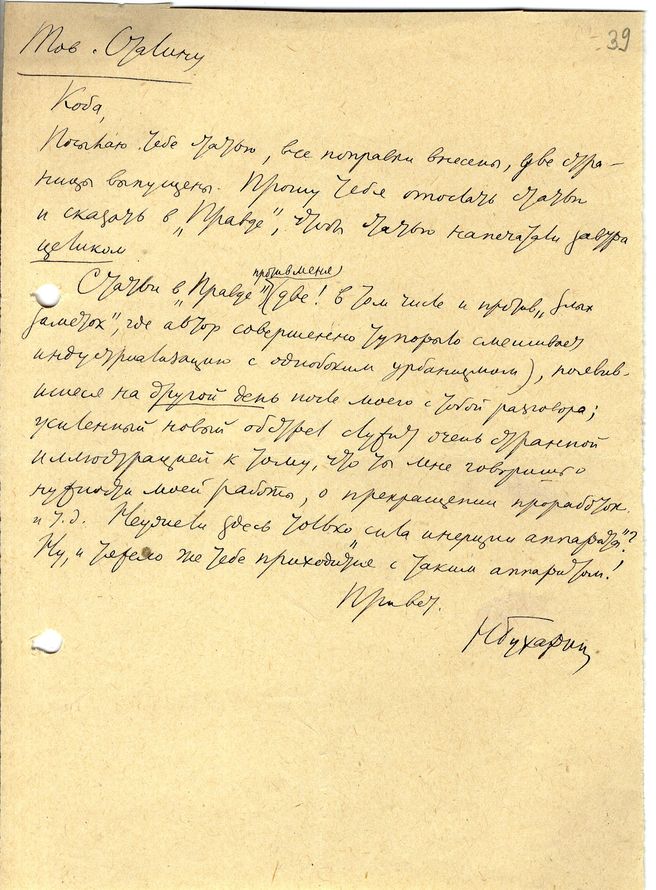 39
Тов. Сталину
Коба,
Посылаю тебе статью, все поправки внесены, две стра-
ницы выпущены. Прошу тебя отослать статью
и сказать в „Правде", чтоб статью напечатали завтра
целиком.
против меня
Статьи в „Правде" (две! в том числе и против „Злых
заметок", где автор совершенно тупорыло смешивает
индустриализацию с однобоким урбанизмом), появив-
шиеся на другой день после моего с тобой разговора;
усиленный новый обстрел служит очень странной
иллюстрацией к тому, что ты мне говоришь о
нужности моей работы, о прекращении проработок
и т.д. Неужели здесь только сила инерции аппарата"?
Ну, и тяжело же тебе приходится с таким аппаратом!
Привет.
Н Бухарин